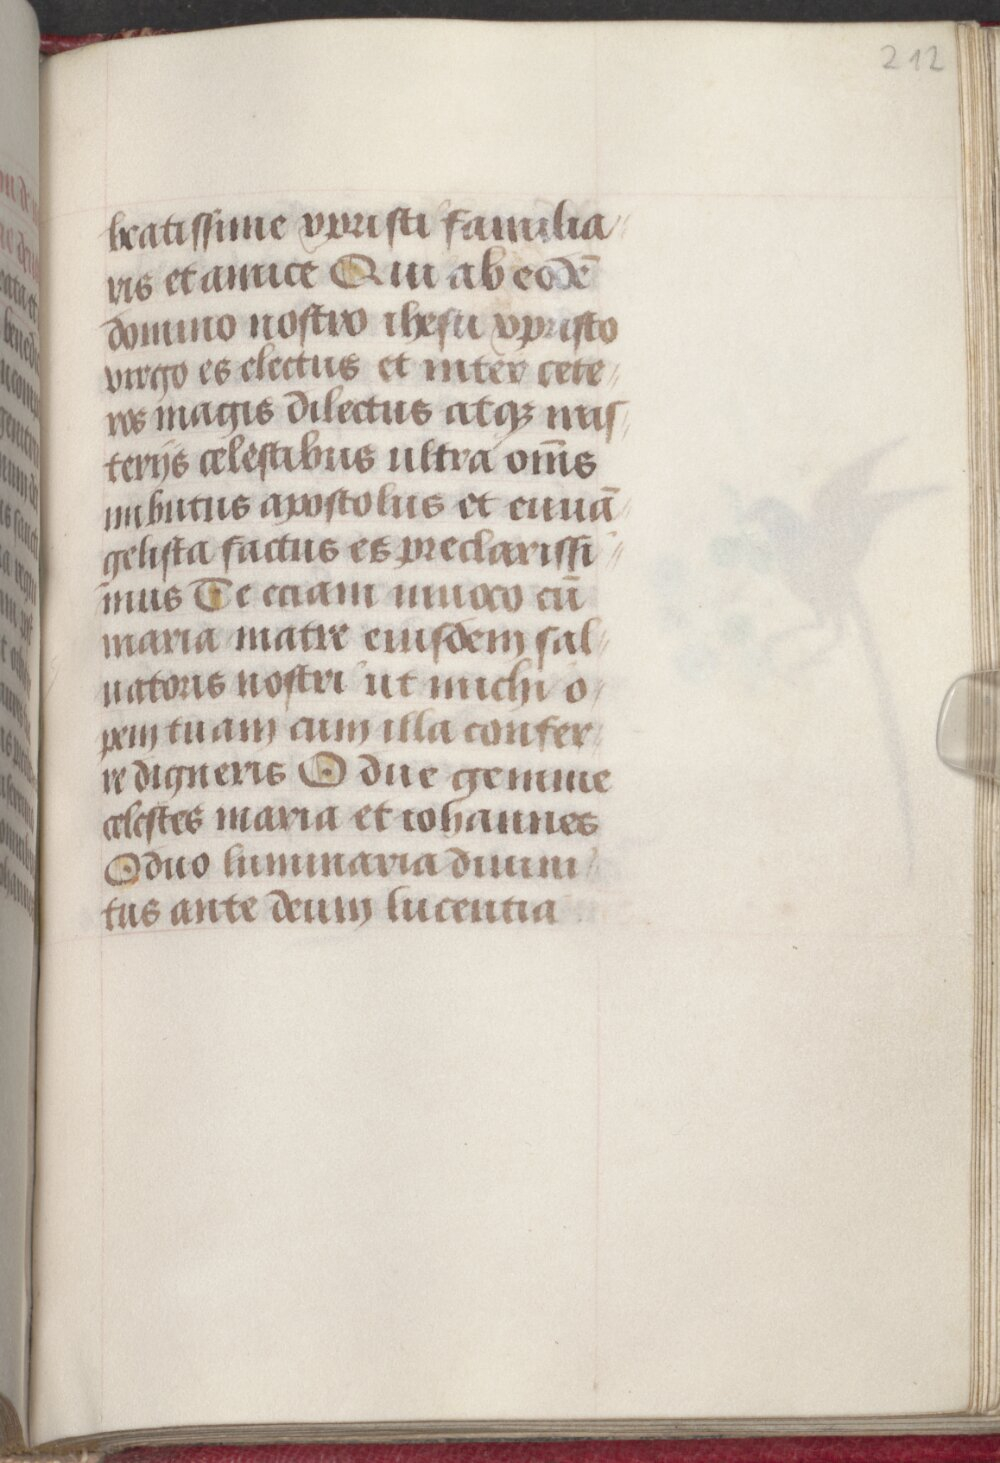 212
beatissime xpristi familia〃
ris et amice Qui ab eodē
domino nostro ihesu xpristo
virgo es electus et inter cete〃
ros magis dilectus atqꝫ mis〃
terijs celestibus ultra om̄s
imbutus apostolus et euuā〃
gelista factus es preclarissi〃
mus Te eciam inuoco cū
maria matre eiusdem sal〃
uatoris nostri ut michi o〃
pem tuam cum illa confer〃
re digneris O due gemme
celestes maria et iohannes
O duo luminaria diuini〃
tus ante deum lucentia